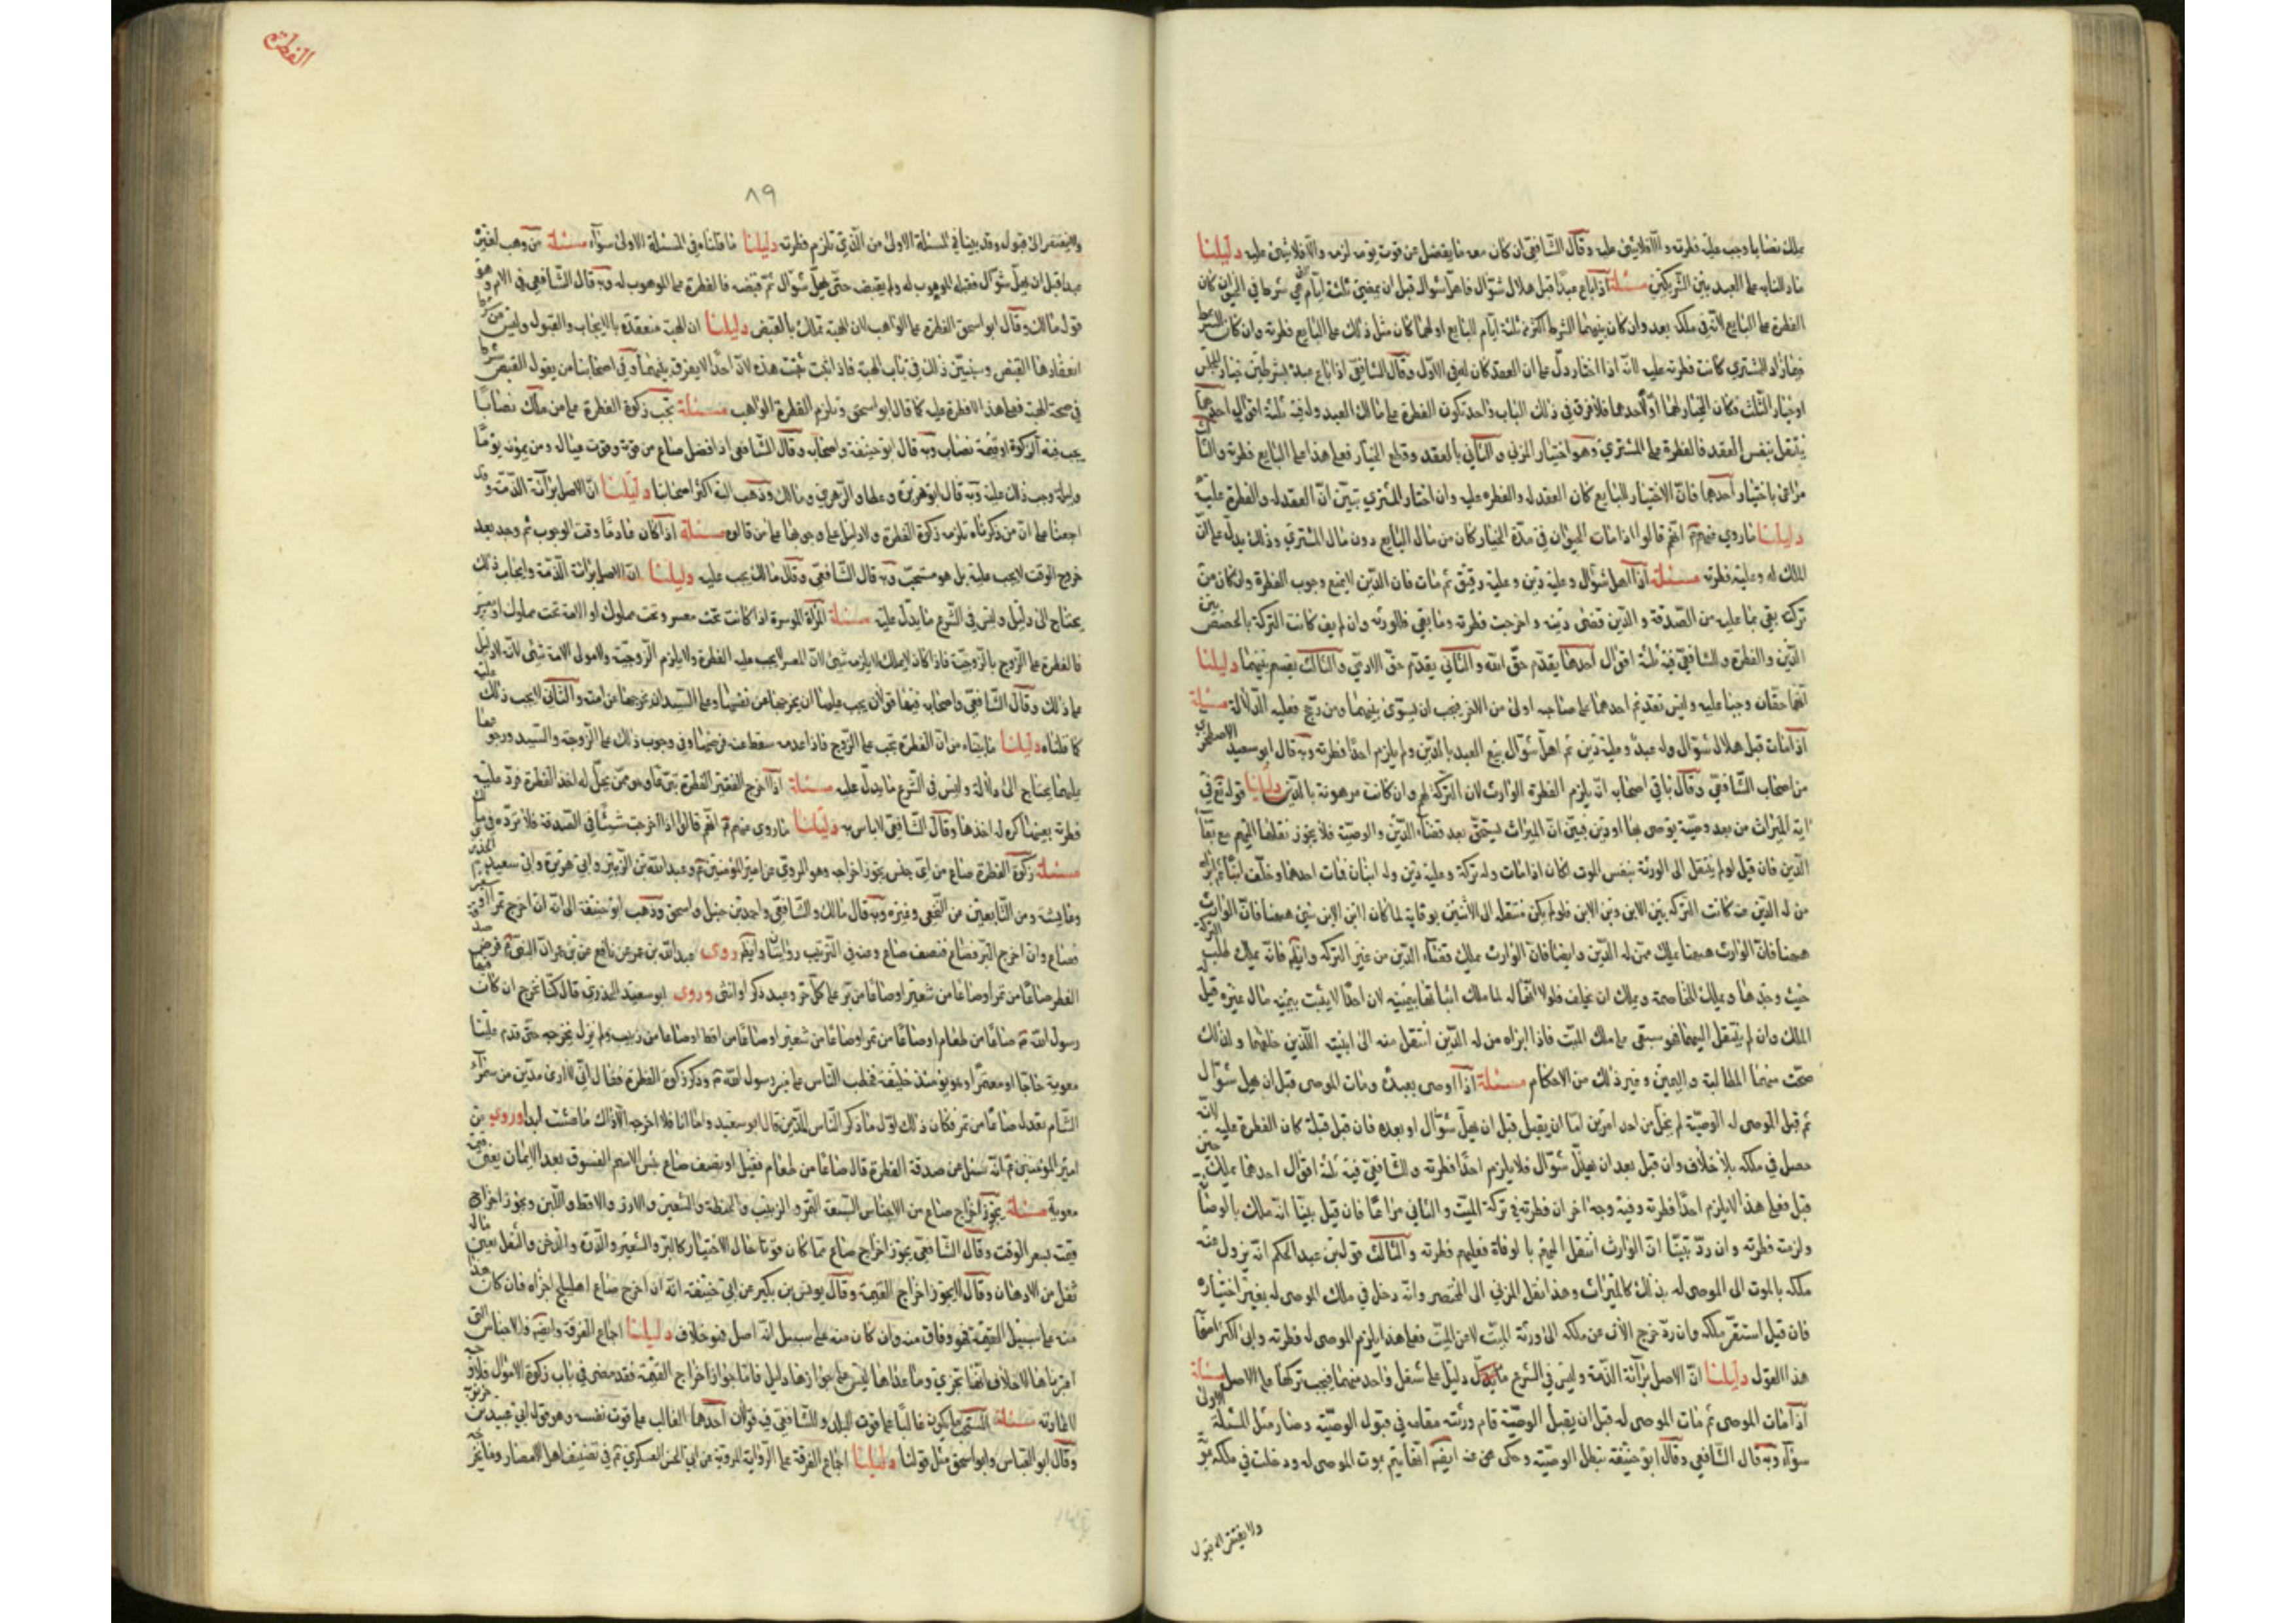 يملك نصابا وجب عليه فطرته والا فلا شيئ عليه وقال الشافعي ان كان معه ما يفضل عن قوت يومه لزمه والا فلا شيئ عليه دليلنا
ما دللنا به على العبد بين الشريكين مسئلة اذا باع عبدا قبل هلال شوال فاهل شوال قبل ان يمضي ثلثة ايام هي شرط في الحيوان كان
الفطرة على البايع لانه في ملكه بعد وان كان بينهما الشرط اكثر من ثلثة ايام للبايع او لهما كان مثل ذلك على البايع فطرته وان كان الشرط
فيما زاد للمشتري كانت فطرته عليه لانه اذا اختار دل على ان العقد كان له في الاول وقال الشافعي اذا باع عبده بشرطين خيار المجلس
او خيار الثلث فكان الخيار لهما او لاحدهما فلا فرق في ذلك الباب واحد تكون الفطرة على مالك العبد وله فيه ثلثة اقوال احدها
ينتقل بنفس العقد فالفطرة على المشتري وهو اختيار المزني والثاني بالعقد وقطع الخيار فعلى هذا على البايع فطرته والثالث
مراعى باختيار احدهما فان الاختيار للبايع كان العقد له والفطرة عليه وان اختار المشتري تبين ان العقد له والفطرة عليه
دليلنا ما روي عنهم انهم قالوا اذا مات الحيوان في مدة الخيار كان من مال البايع دون مال المشتري وذلك يدل على ان
الملك له وعليه فطرته مسئلة اذا اهل شوال وعليه دين وعليه رقيق ثم مات فان الدين لا يمنع وجوب الفطرة وان كان من
تركته بقي بما عليه من الصدقة والدين قضى دينه واخرجت فطرته وما بقي فلورثته وان لم يف كانت التركة بالحصص بين
الدين والفطرة وللشافعي فيه ثلثة اقوال احدها يقدم حق الله والثاني يقدم حق الادمي والثالث يقسم بينهما دليلنا
انهما حقان وجبا عليه وليس تقديم احدهما على صاحبه اولى من الاخر فيجب ان يسوى بينهما ومن رجح فعليه الدلالة مسئلة
اذا مات قبل هلال شوال وله عبد وعليه دين ثم اهل شوال بيع العبد بالدين ولم يلزم احدا فطرته وبه قال ابو سعيد الاصطخري
من اصحاب الشافعي وقال باقي اصحابه انه يلزم الفطرة الوارث لان التركة لهم وان كانت مرهونة بالدين دليلنا قوله تع في
اية الميراث من بعد وصية يوصى بها او دين فبين ان الميراث يستحق بعد قضاء الدين والوصية فلا يجوز نقلها اليهم مع بقاء
الدين فان قيل لو لم ينتقل الى الورثة بنفس الموت لكان اذا مات وله تركة وعليه دين وله ابنان فمات احدهما وخلف ابنا ثم ابراه
من له الدين منه كانت التركة بين الابن وبن الابن فلو لم يكن منتقله الى الاثنين بوفاته لما كان ابن الابن شيئ هيهنا فان الوارث
هيهنا فان الوارث هيهنا يملك ممن له الدين وايضا فان الوارث يملك قضاء الدين من غير التركه وايضا فانه يملك طلب التركه
حيث وجدها ويملك المخاصمة ويملك ان يحلف فلولا انها له لما ملك اثباتها بيمينه لان احدا لا يثبت بيمينه مال غيره قيل
الملك وان لم ينتقل اليهما فهو مبقى على ملك الميت فاذا ابراه من له الدين انتقل منه الى ابنيه اللذين خلفهما ولذلك
صحت منهما المطالبة واليمين وغير ذلك من الاحكام مسئلة اذا اوصى بعبده ومات الموصى قبل ان يهل شوال
ثم قبل الموصى له الوصية لم يخل من احد امرين اما ان يقبل قبل ان يهل شوال او بعده فان قبل قبله كان الفطرة عليه لانه
حصل في ملكه بلا خلاف وان قبل بعد ان يهل شوال فلا يلزم احدا فطرته وللشافعي فيه ثلثة اقوال احدها يملك حين
قبل فعلى هذا لا يلزم احدا فطرته وفيه وجه اخر ان فطرته في تركة الميت والثاني مراعا فان قبل بينا انه ملك بالوصا
ولزمته فطرته وان رد تبينا ان الوارث انتقل اليهم بالوفاة فعليهم فطرته والثالث قول بن عبد الحكم انه يزول عنه
ملكه بالموت الى الموصى له بذلك كالميراث وهذا نقل المزني الى المختصر وانه دخل في ملك الموصى له بغير اختياره
فان قبل استقر ملكه وان رد خرج الان عن ملكه الى ورثة الميت لا من الميت فعلى هذا يلزم الموصى له فطرته وابى اكثر اصحابه
هذا القول دليلنا ان الاصل برائة الذمة وليس في الشرع ما يدل دليل على شغل واحد منهما فيجب تركهما على الاصل مسئلة
اذا مات الموصى ثم مات الموصى له قبل ان يقبل الوصية قام ورثته مقامه في قبول الوصية وصار مثل المسئلة الاولى
سواء وبه قال الشافعي وقال ابو حنيفة تبطل الوصية وحكى عن عنه ايضا انها تيم بموت الموصى له ودخلت في ملكه بموته
ولا يفتقر الى قبول
الفطرة
٨٩
ولا يفتقر الى قبول وقد بينا في المسئلة الاولى من الذي تلزم فطرته دليلنا ما قلناه في المسئلة الاولى سواء مسئلة من وهب لغيره
عبدا قبل ان يهل شوال فقبله الموهوب له ولم يقبض حتى يهل شوال ثم قبضه فالفطرة على الموهوب له وبه قال الشافعي في الام وهو
قول مالك وقال ابو اسحق الفطرة على الواهب لان الهبة تملك بالقبض دليلنا ان الهبة منعقدة بالايجاب والقبول وليس من شرط
انعقادها القبض وسنبين ذلك في باب الهبة فاذا ثبت ثبت هذه لان احدا لا يفرق بينهما وفي اصحابنا من يقول القبض شرط
في صحة الهبة فعلى هذا لا فطرة عليه كما قال ابو اسحق وتلزم الفطرة الواهب مسئلة تجب زكوة الفطرة على من ملك نصابا
يجب فيه الزكوة او قيمة نصاب وبه قال ابو حنيفة واصحابه وقال الشافعي اذا فضل صاع عن قوته وقوت عياله ومن يمونه يوما
وليلة وجب ذلك عليه وبه قال ابو هريرة وعطا والزهري ومالك وذهب اليه اكثر اصحابنا دليلنا ان الاصل برائة الذمة وقد
اجمعنا على ان من ذكرناه تلزمه زكوة الفطرة ولا دليل على وجوبها على من قالوه مسئلة اذا كان فاقدا وقت الوجوب ثم وجد بعد
خروج الوقت لا يجب عليه بل هو مستحب وبه قال الشافعي وقال مالك يجب عليه دليلنا ان الاصل برائة الذمة وايجاب ذلك
يحتاج الى دليل وليس في الشرع ما يدل عليه مسئلة المراة الموسرة اذا كانت تحت معسر وتحت مملوك او الامة تحت مملوك او معسر
فالفطرة على الزوج بالزوجية فاذا كان لا يملك لا يلزمه شيئ لان المعسر لا يجب عليه الفطرة ولا يلزم الزوجية ولا مولى الامة شيئ لانه لا دليل
على ذلك وقال الشافعي واصحابه فيها قولان يجب عليها ان يخرجها عن نفسها وعلى السيد ان يخرجها عن امته والثاني لا يجب ذلك عليه
كما قلناه دليلنا ما بيناه من ان الفطرة تجب على الزوج فاذا عدمه سقط عنه فرضها وفي وجوب ذلك على الزوجة والسيد ورجوعها
عليهما يحتاج الى دلالة وليس في الشرع ما يدل عليه مسئلة اذا اخرج الفقير الفطرة بمن يحل له اخذ الفطرة فرد عليه
فطرته بعينها كره له اخذها وقال الشافعي لا باس به دليلنا ما روى عنهم انهم قالوا اذا اخرجت شيئا في الصدقة فلا ترده في ملك
مسئلة زكوة الفطرة صاع من اي جنس يجوز اخراجه وهو المروي عن امير المؤمنين ع وعبد الله بن الزبير وابي هريرة وابي سعيد الخدري
وعايشة ومن التابعين من النخعي وغيره وبه قال مالك والشافعي واحمد بن حنبل واسحق وذهب ابو حنيفة الى انه ان اخرج تمرا او شعيرا
فصاع وان اخرج البر فصاع فنصف صاع وعنه في الزبيب روايتان روى عبد الله بن عمر عن نافع عن بن عمر ان النبي فرض صدقة
الفطر صاعا من تمر او صاعا من شعير او صاعا من بر على كل حر وعبد ذكر او انثى وروى ابو سعيد الخدري قال كنا نخرج ان كان فينا
رسول الله صاعا من طعام او صاعا من تمر او صاعا من شعير او صاعا من اقط او صاعا من زبيب ولم نزل نخرجه حتى قدم علينا
معوية حاجا او معتمرا وهو يومئذ خليفة فخطب الناس على منبر رسول الله وذكر زكوة الفطرة فقال اني لا رى مدين من سمراء
الشام تعدل صاعا من تمر فكان ذلك اول ما ذكر الناس المدين قال ابو سعيد واما انا فلا اخرجه الا ذاك ما عشت ابدا وروى عن
امير المؤمنين ع انه سئل عن صدقة الفطرة قال صاعا من طعام فقيل او نصف صاع بئس الاسم الفسوق بعد الايمان يعني
معوية مسئلة يجوز اخراج صاع من الاجناس السبعة التمر والزبيب والحنطة والشعير والارز والاقط واللبن ويجوز اخراج
قيمته بسعر الوقت وقال الشافعي يجوز اخراج صاع مما كان قوتا حال الاختيار كالبر والشعير والذرة والدخن والثفل يعني مال
ثفل من الادهان وقال لا يجوز اخراج القيمة وقال يونس بن بكير عن ابي حنيفة انه ان اخرج صاع اهليلج اجزاه فان كان هذا
منه على سبيل القيمة فهو وفاق منه وان كان منه على سبيل انه اصل فهو خلاف دليلنا اجماع الفرقة وايضا فالاجناس التي
اعتبرناها لا خلاف انها تجزي وما عداها ليس على جوازها دليل فاما جواز اخراج القيمة فقد مضى في باب زكوة الاموال فلا وجه
لاعادته مسئلة المستحب ما يكون غالبا على قوت البلد وللشافعي فيه قولان احدهما الغالب على قوت نفسه وهو قول ابي عبيد بن
وقال ابو العباس وابو اسحق مثل قولنا دليلنا اجماع الفرقة على الرواية المروية عن ابي الحسن العسكري ع في تصنيف اهل الامصار وما يخرجه